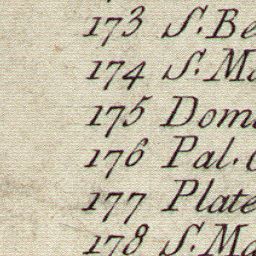 173 S. Be
174 S. Ma
175 Dom
176 Pal.
177 Plate
178 S. Ma